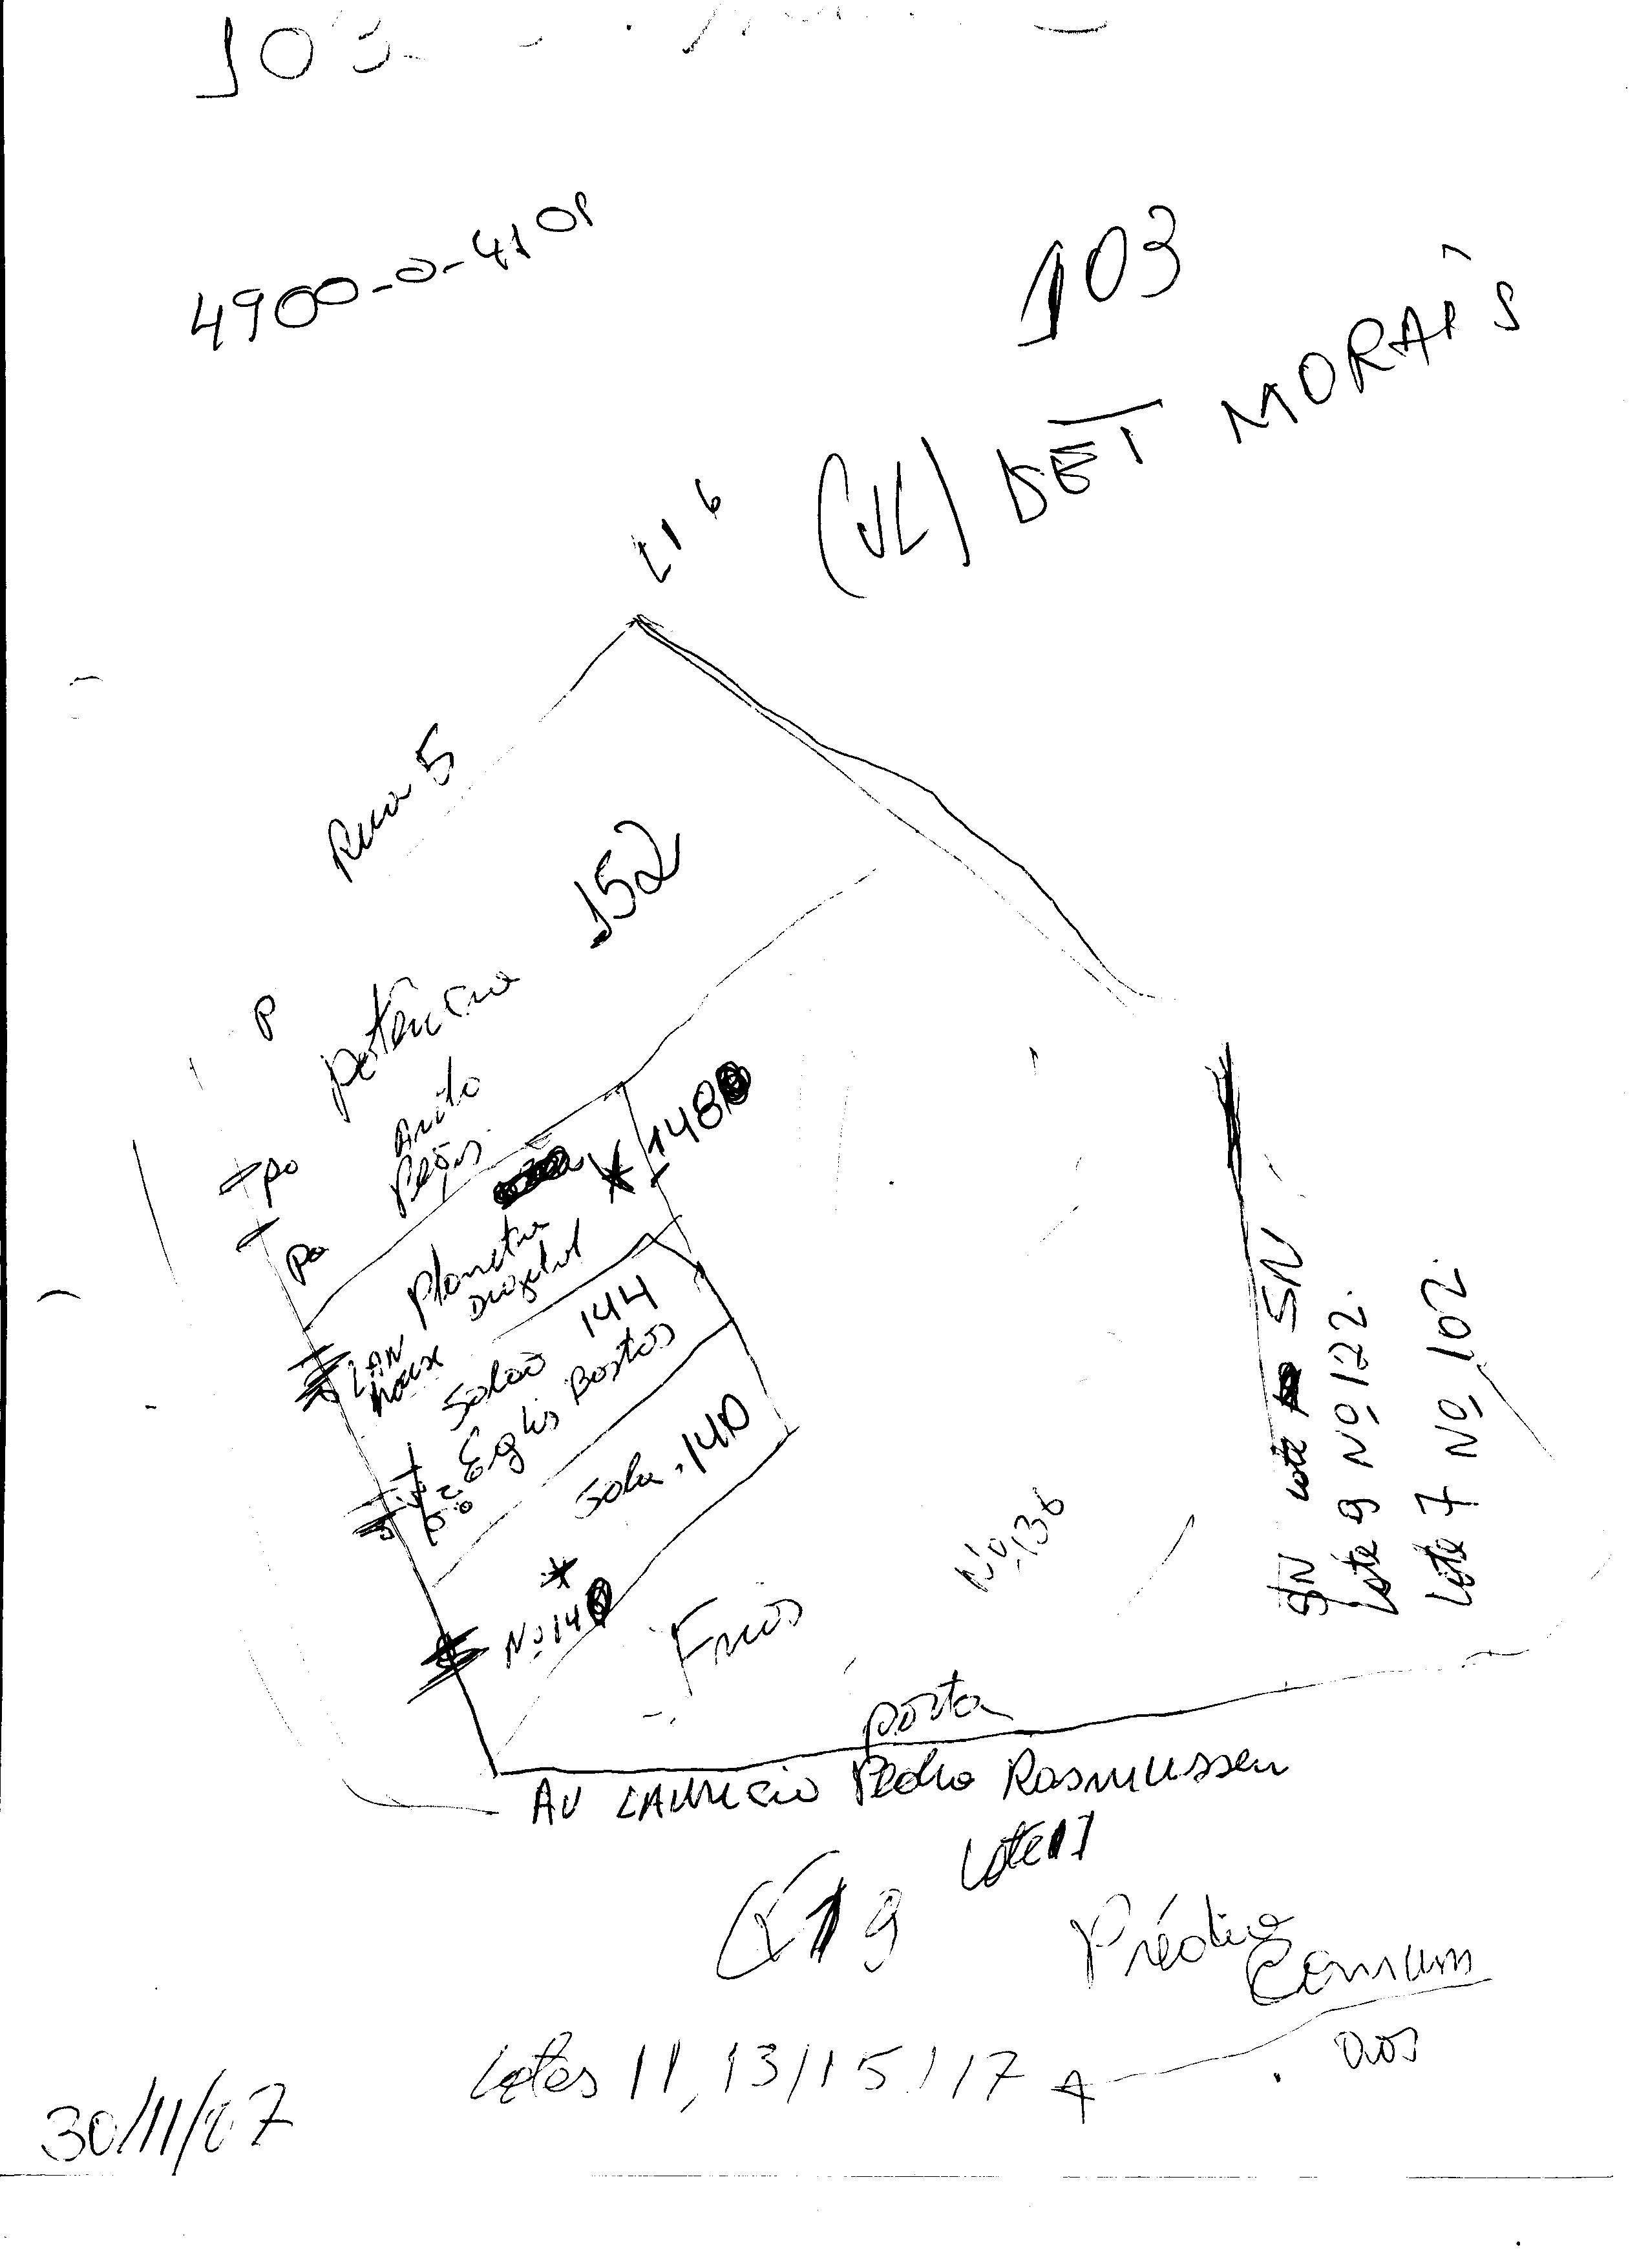 103
4900-0-4101
103
(VL) DET MORAIS
L16
Rua 5
152
P
potencia
Anito
Peças
po
148
po
Planeta
Digital
LAN
house
Salão 144
Eglis Bastos
Sala 140
Nº 14
Frios
Nº 136
S/N Lote SN
Lote 9 Nº 122.
Lote 7 Nº 102.
porta
AV LAURICIO Pedro Rasmussen
Lote 17
19
Prédio
Comum
aos
Lotes 11, 13/15/17
30/11/07